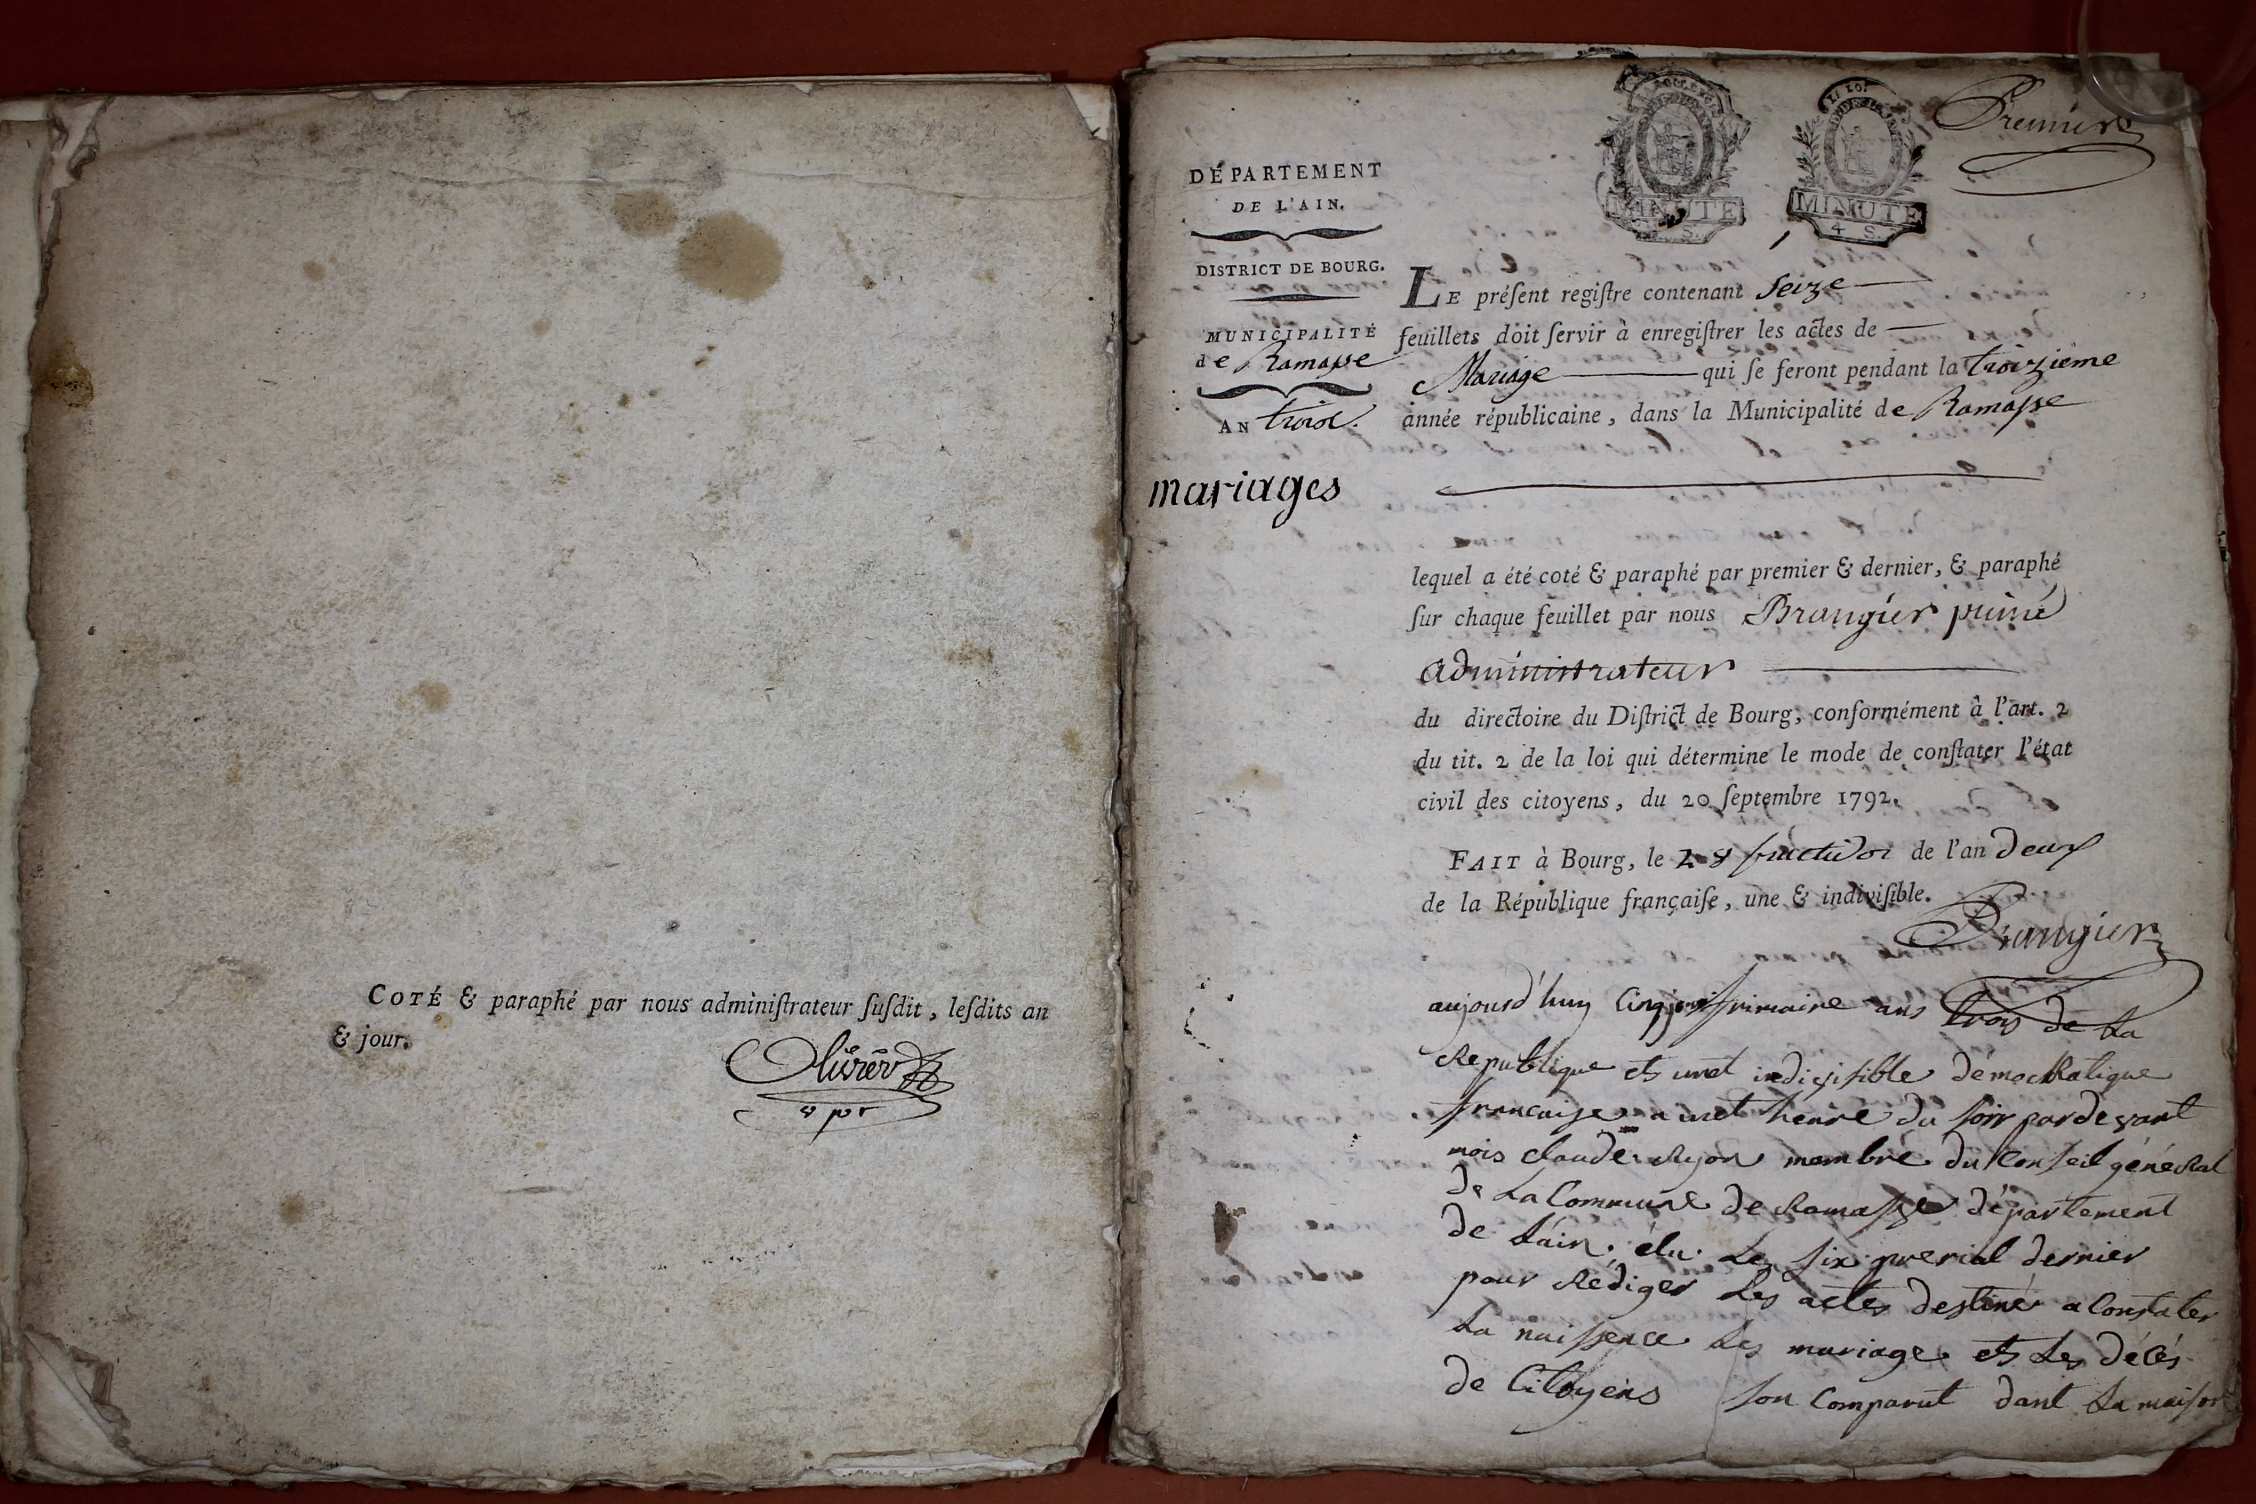 COTÉ & paraphé par nous adminiſtrateur ſuſdit, leſdits an
& jour.
Premier
LA LOI
MINUTE
MINUTE
4 S.
DÉPARTEMENT
DE L'AIN.
DISTRICT DE BOURG.
MUNICIPALITÉ
de Ramasse
AN trois.
mariages
LE préſent regiſtre contenant Seize
feuillets doit ſervir à enregiſtrer les actes de
Mariage qui ſe feront pendant la troizieme
année républicaine, dans la Municipalité de Ramasse
lequel a été coté & paraphé par premier & dernier, & paraphé
ſur chaque feuillet par nous Brangier
administrateur
du directoire du Diſtrict de Bourg, conformément à l'art. 2
du tit. 2 de la loi qui détermine le mode de conſtater l'état
civil des citoyens, du 20 ſeptembre 1792.
FAIT à Bourg, le 28 fructidor de l'an deux
de la République françaiſe, une & indiviſible.
Brangier
aujourd'huy frimaire ans trois de La
Republique et unet indivisible démocRatique
francaise a unet heure du soir pardevant
mois claude Ryon membre du Conseil généRal
de La Commune de Ramasse département
de L'ain, élu Le six prerial dernier
pour Rédiger Les actes destiné a Constater
La naissence Les mariage et Les décés
de Citoyens son Comparut dant La maison